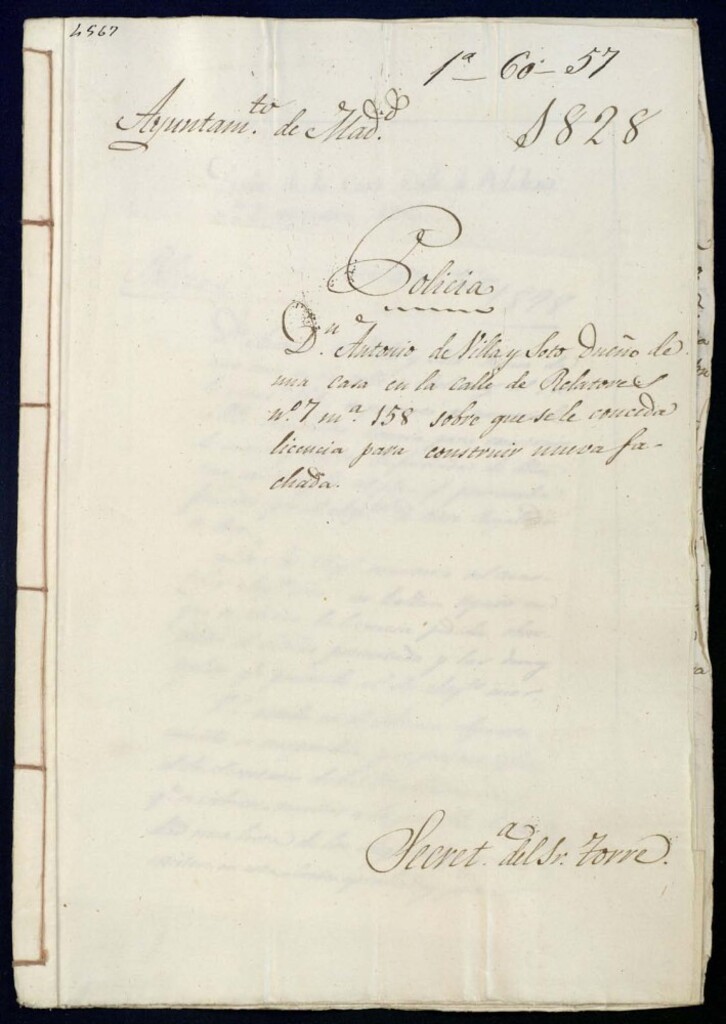 4567
1ª - 60 - 57
Ayuntam.to de Mad.d
1828
Policia
D.n Antonio de Villa y Soto, Dueño de
una casa en la calle de Relatores
n.º 7 m.ª 158 sobre que se le conceda
licencia para construir nueva fa-
chada.
Secret.a del Sr. Torre.